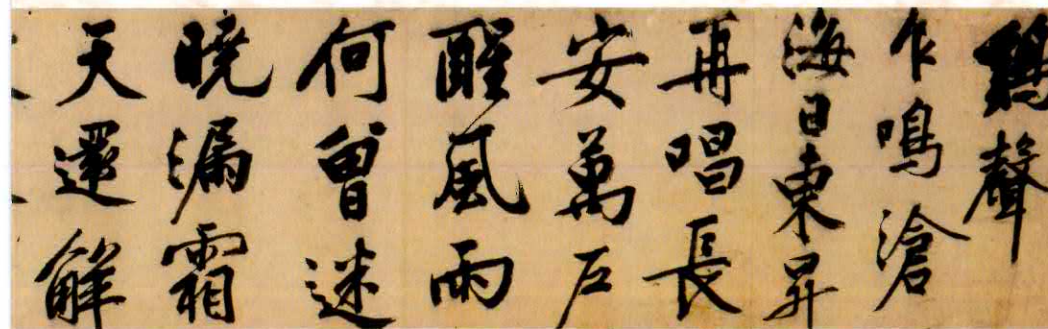 鷄聲
乍鳴滄
海日東昇
再唱長
安萬戶
醒風雨
何曾迷
曉漏霜
天還解